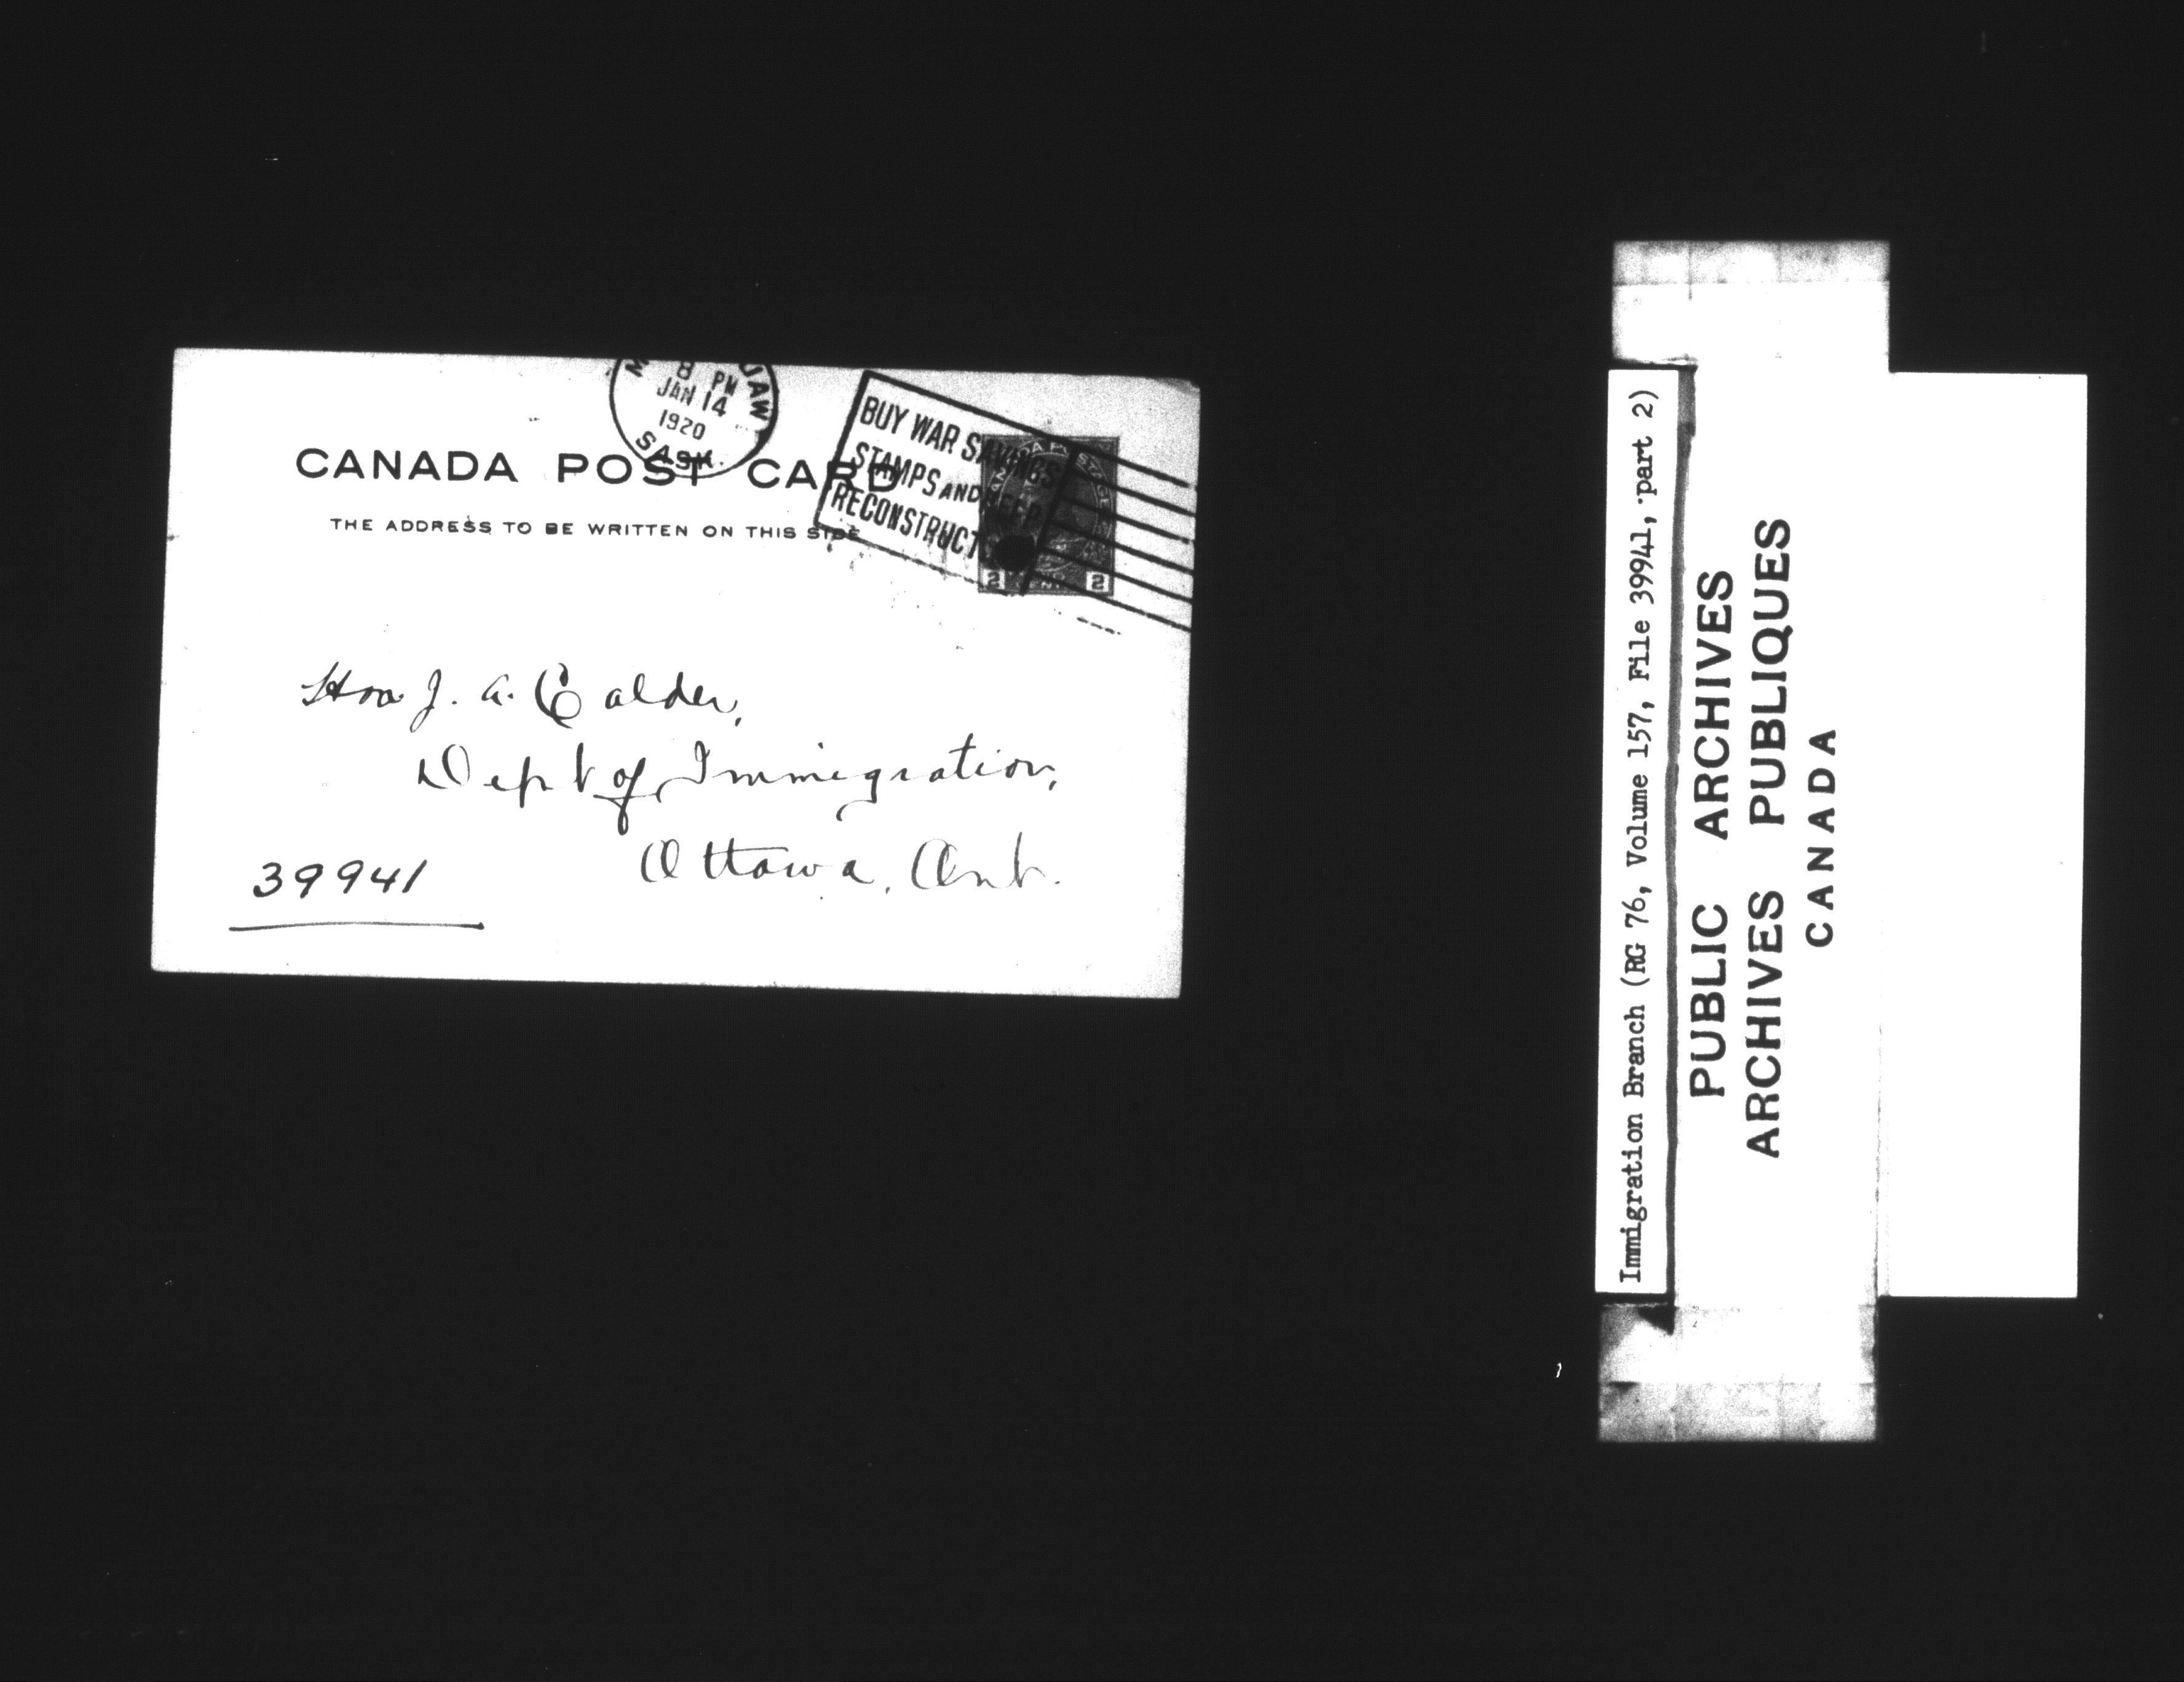 M JAW
8 PM
JAN 14
1920
SASK.
BUY WAR SAVINGS
STAMPS AND HELP
RECONSTRUCT
CANADA POST CARD
THE ADDRESS TO BE WRITTEN ON THIS SIDE
2 CENTS 2
Hon J. A. Calder,
Dept of Immigration,
Ottawa, Ont.
39941
Immigration Branch (RG 76, Volume 157, File 39941, part 2)
PUBLIC ARCHIVES
ARCHIVES PUBLIQUES
CANADA